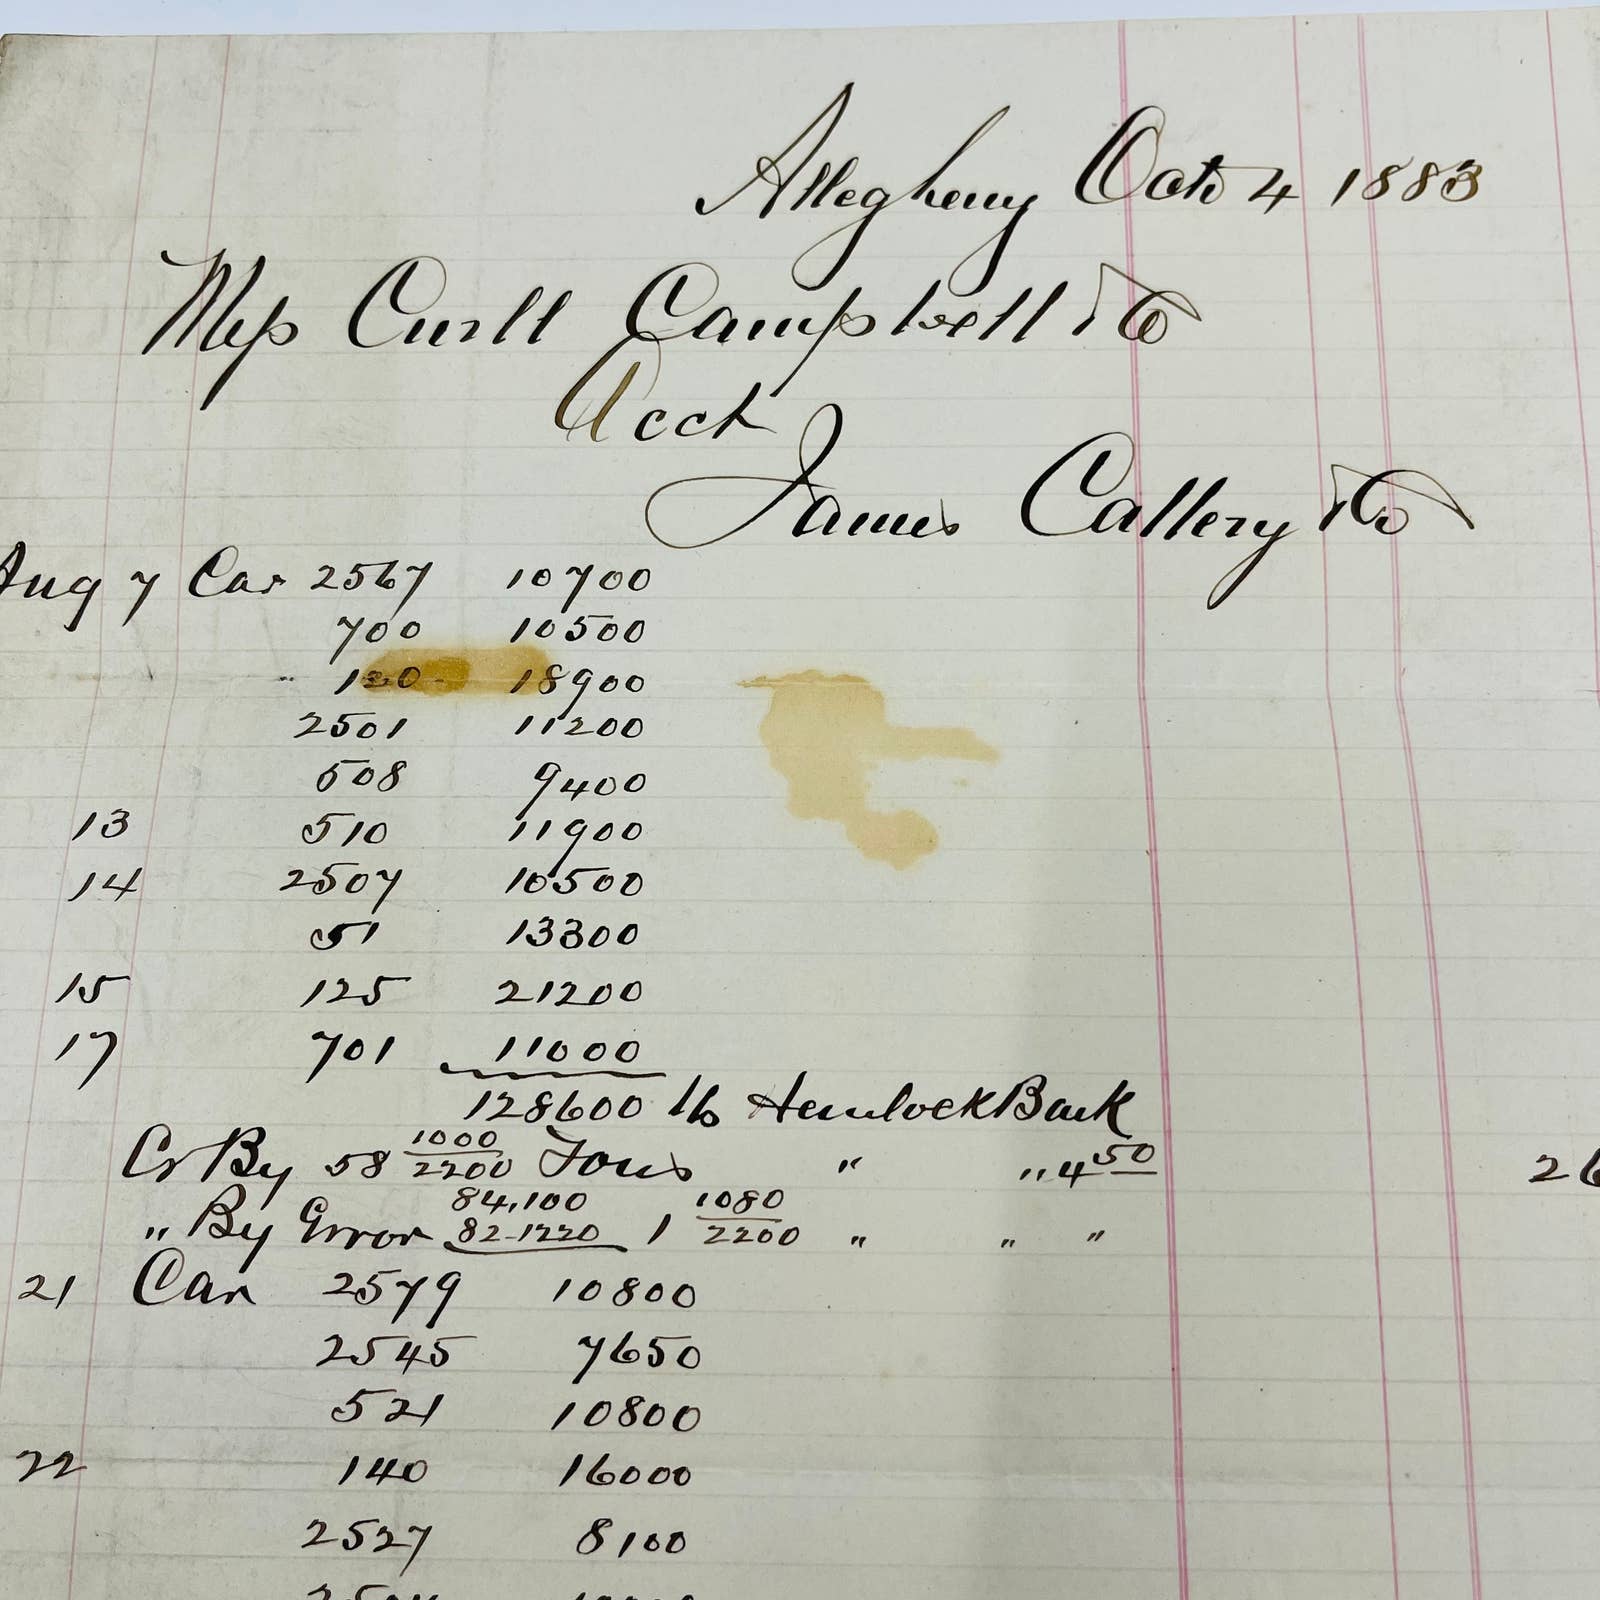 Allegheny Octo 4 1883
Mess Curll Campbell & Co
Acct
James Callery & Co
Aug 7 Car 2567 10700
700 10500
120 18900
2501 11200
508 9400
13 510 11900
14 2507 10500
51 13300
15 125 21200
17 701 11000
128600 lb Hemlock Bark
Cr By 58 1000/2200 Tons " " 4 50 26
" By Error 84,100 82-1220 1 1080/2200 " " "
21 Car 2579 10800
2545 7650
521 10800
22 140 16000
2527 8100